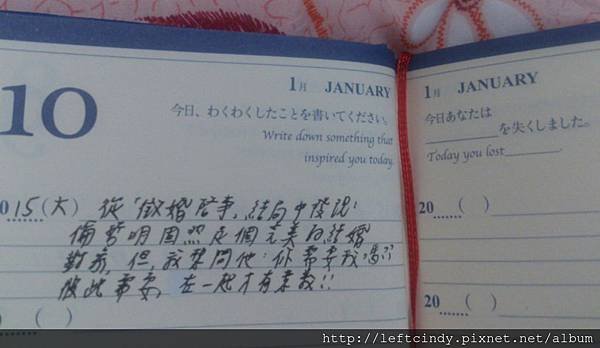 10
1月 JANUARY
今日、わくわくしたことを書いてください。
Write down something that
inspired you today.
015(六) 從「徵婚啓事」結局中發現:
哲明固然是個完美的結婚
對象,但,我要問他:你需要我嗎??
彼此需要,在一起才有意義!!
( )
1月 JANUARY
今日あなたは
______を失くしました。
Today you lost______.
20 ( )
20 ( )
http://leftcindy.pixnet.net/album